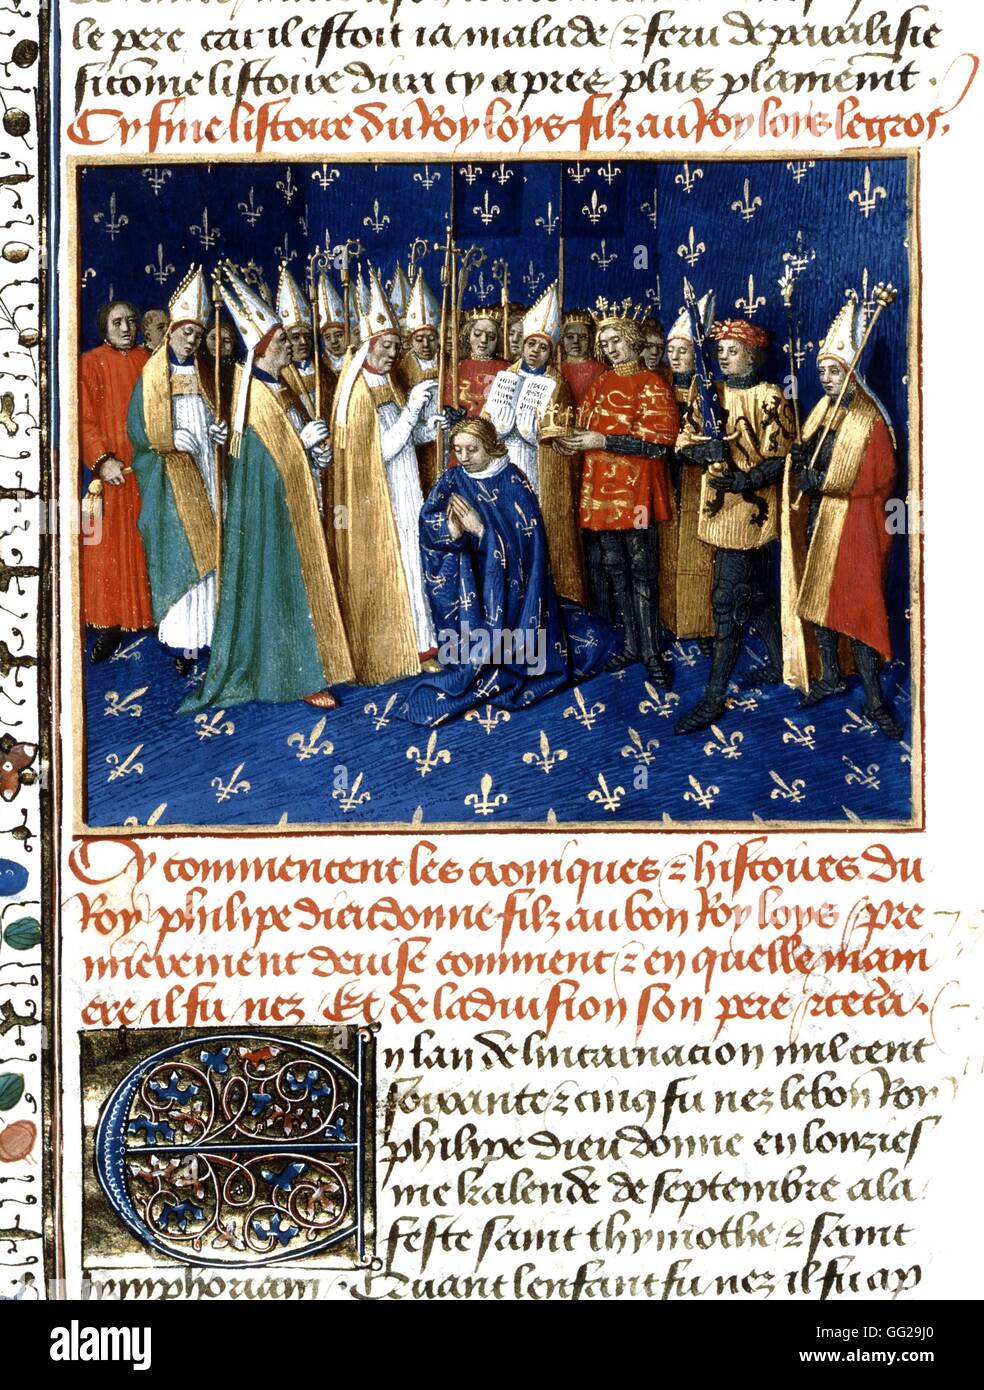 le pere car il estoit ia malade & feru de paralisie
si cõme listoire dira cy apres plus plainemẽt .
Cy fine listoire du Roy loys filz au Roy loys le gros .
Cy commencent les croniques & histoires du
Roy phelipe dieudonne filz au bon Roy loys / pre
mierement deuise comment & en quelle mani
ere il fu nez / Et de la diuision son pere / &cetera .
En lan de lincarnacion mil cent
soixante & cinq fu nez le bon Roy
phelipe dieudonne en lonzies
me kalende de septembre a la
feste saint thymothe & saint
symphoriam . Quant lenfant fu nez il fu ap
alamy stock photo
GG29J0
www.alamy.com